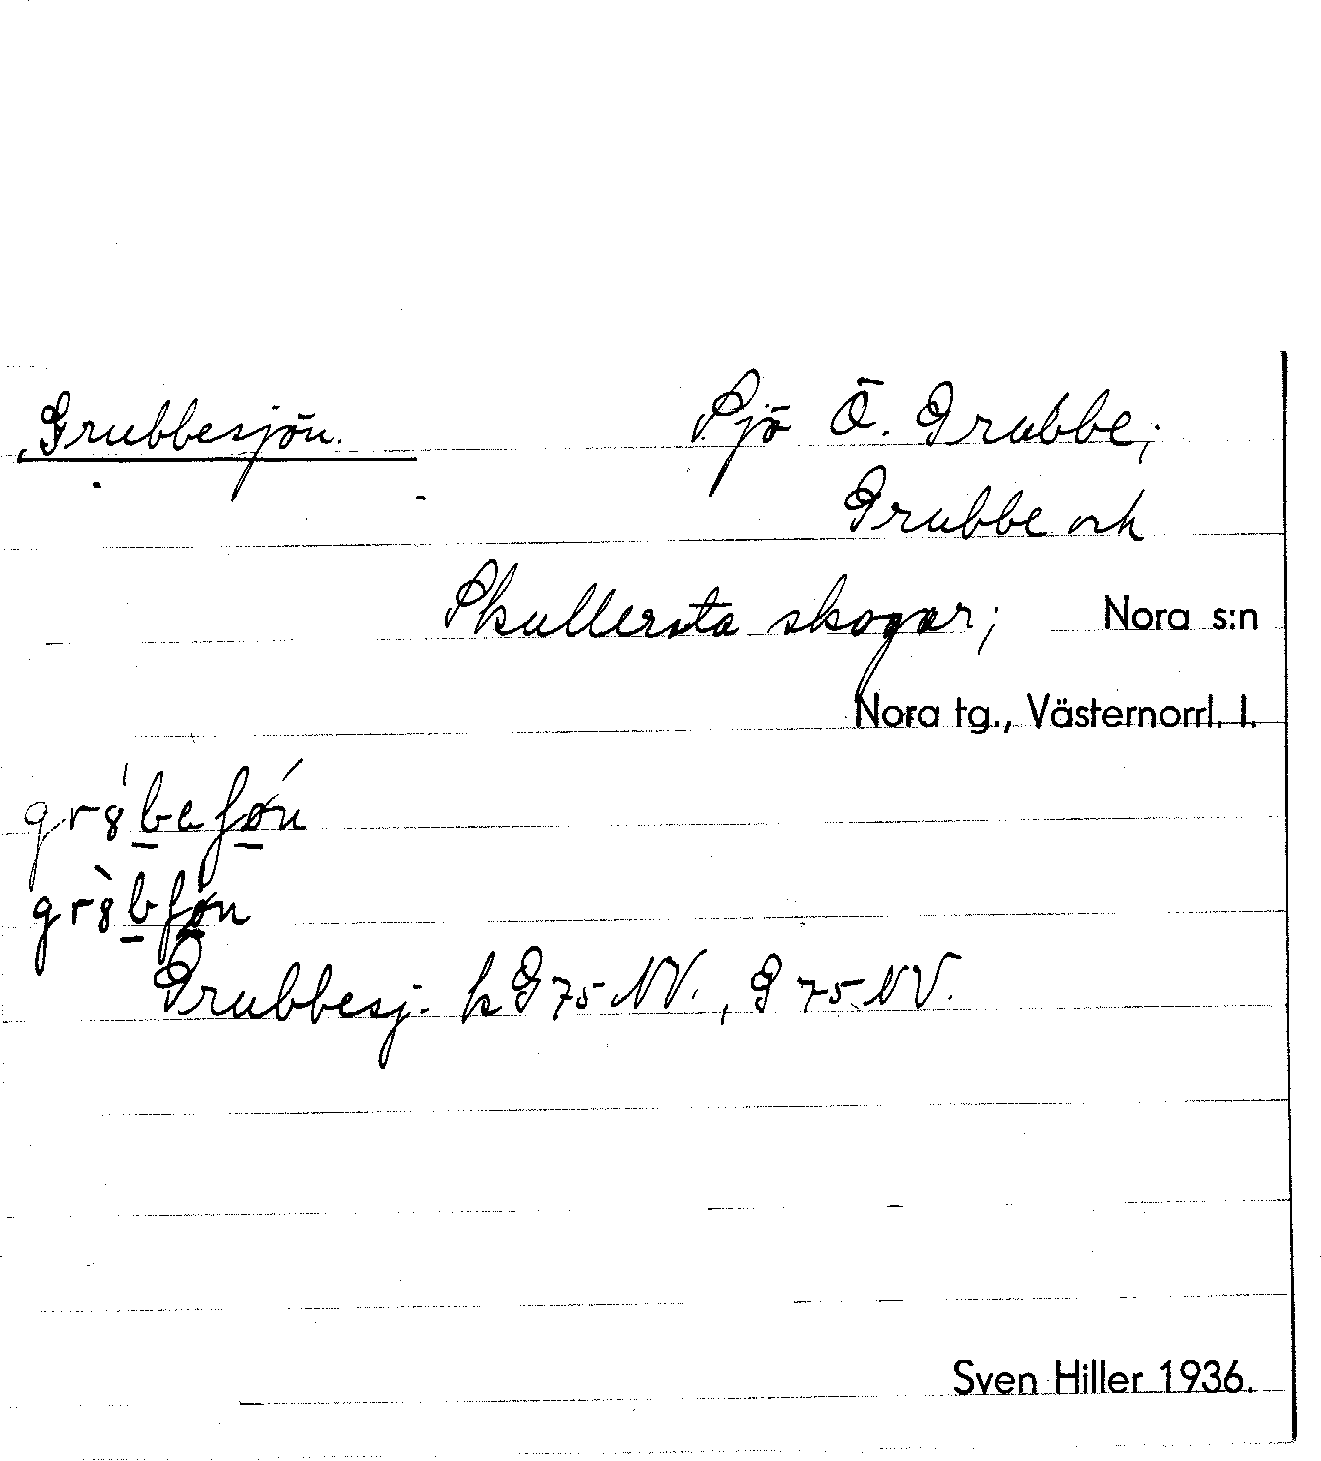 Grubbesjön.
Sjö Ö. Grubbe;
Grubbe och
Skullersta skogar; Nora s:n
Nora tg., Västernorrl. l.
Grubbesj. k G 75 NV., G 75 NV.
Sven Hiller 1936.